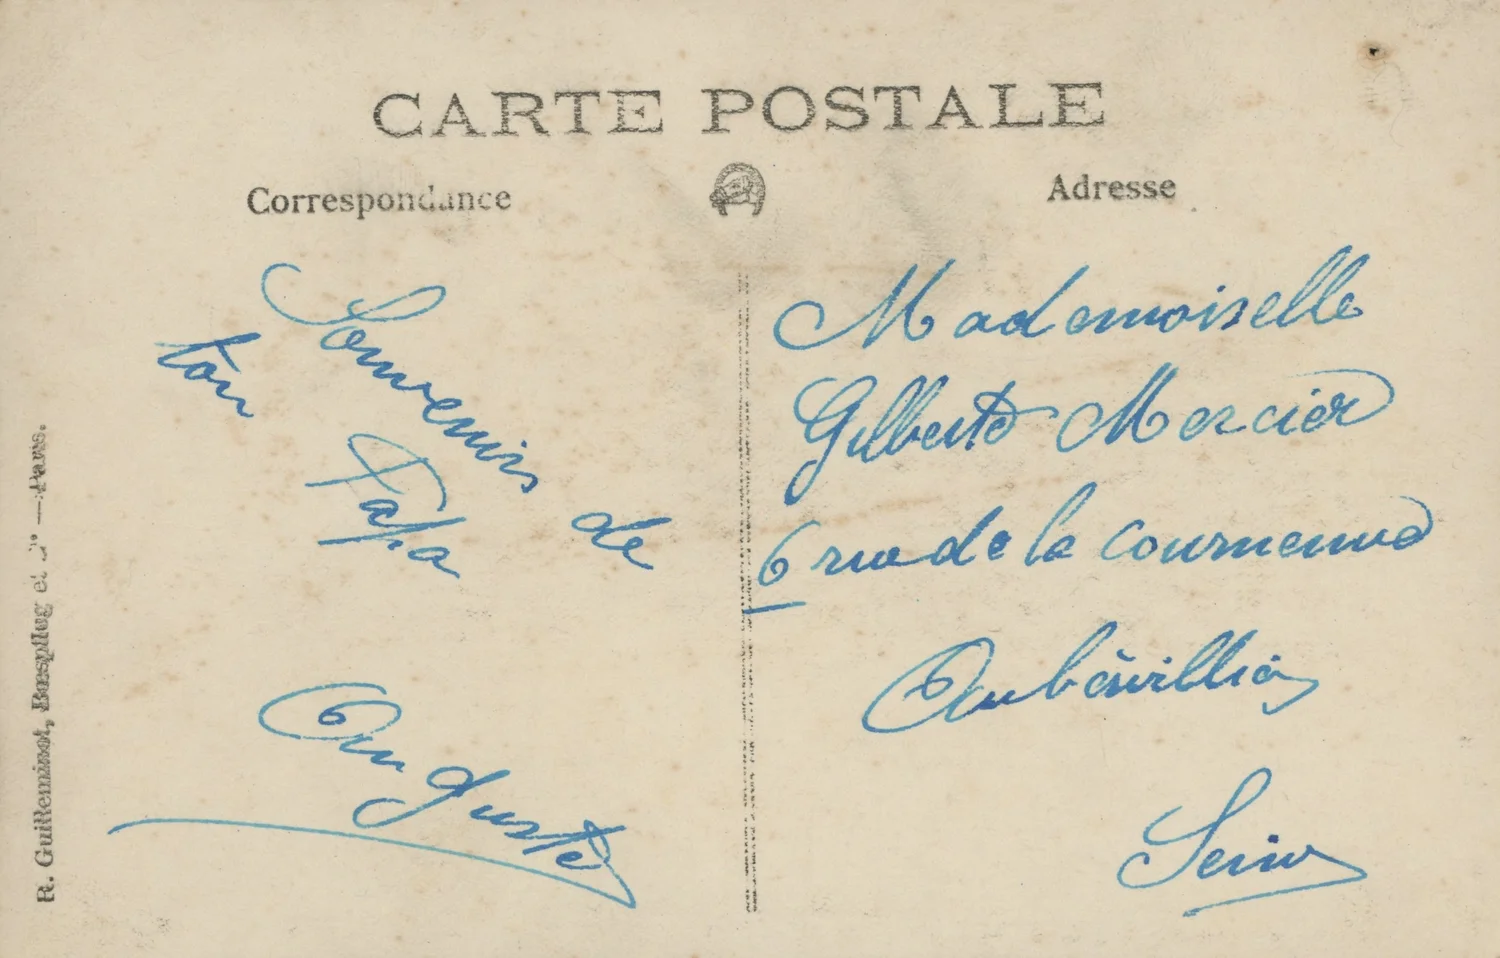 CARTE POSTALE
Correspondance
Adresse
Souvenir de
ton Papa
Auguste
Mademoiselle
Gilberte Mercier
6 rue de la Courneuve
Aubervillier
Seine
R. Guilleminot, Bœspflug et Cie — Paris.